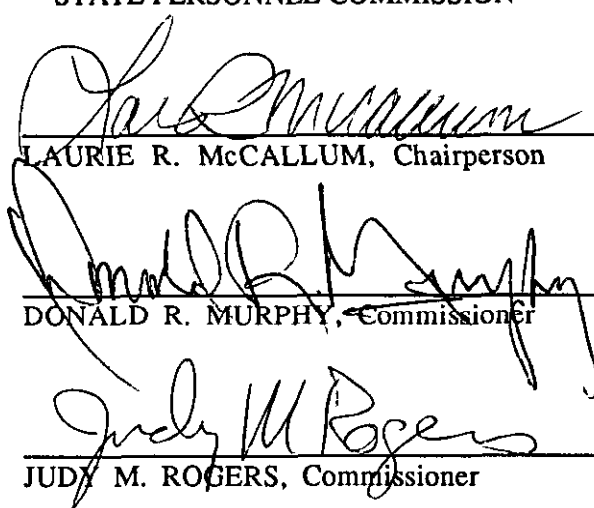 STATE PERSONNEL COMMISSION
Laurie R McCallum
LAURIE R. McCALLUM, Chairperson
Donald R. Murphy
DONALD R. MURPHY, Commissioner
Judy M Rogers
JUDY M. ROGERS, Commissioner